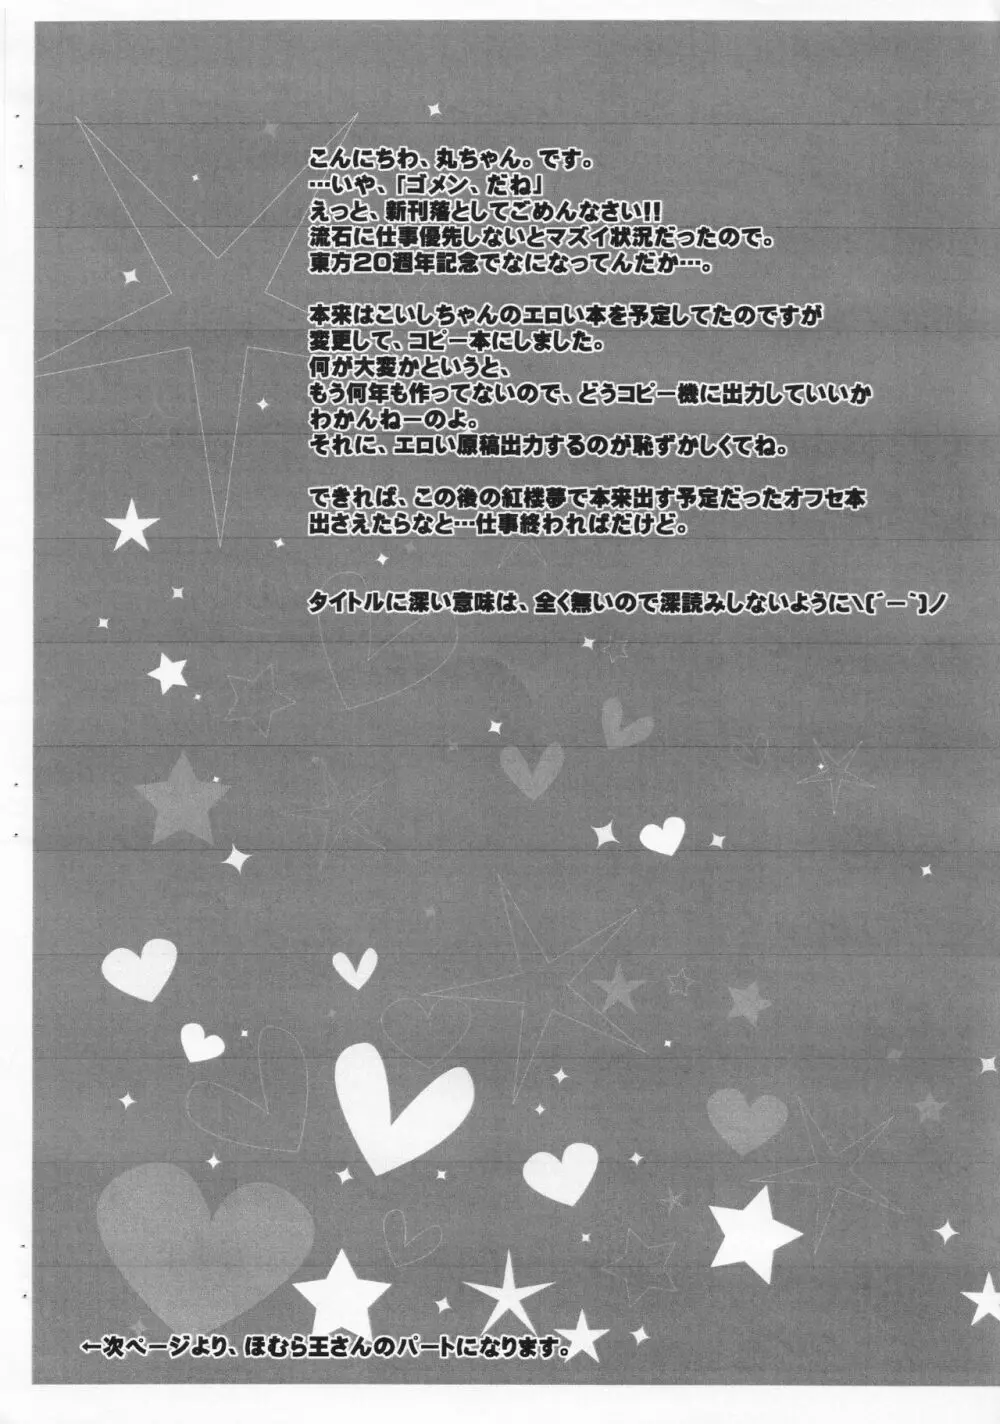 こんにちわ、丸ちゃん。です。
…いや、「ゴメン、だね」
えっと、新刊落としてごめんなさい!!
流石に仕事優先しないとマズイ状況だったので。
東方20週年記念でなになってんだか…。
本来はこいしちゃんのエロい本を予定してたのですが
変更して、コピー本にしました。
何が大変かというと、
もう何年も作ってないので、どうコピー機に出力していいか
わかんねーのよ。
それに、エロい原稿出力するのが恥ずかしくてね。
できれば、この後の紅楼夢で本来出す予定だったオフセ本
出さえたらなと…仕事終わればだけど。
タイトルに深い意味は、全く無いので深読みしないように\(´ー`)ノ
←次ページより、ほむら王さんのパートになります。